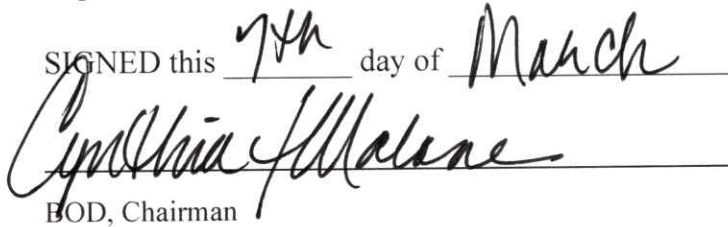 SIGNED this 7th day of March
Cynthia J Malone
BOD, Chairman